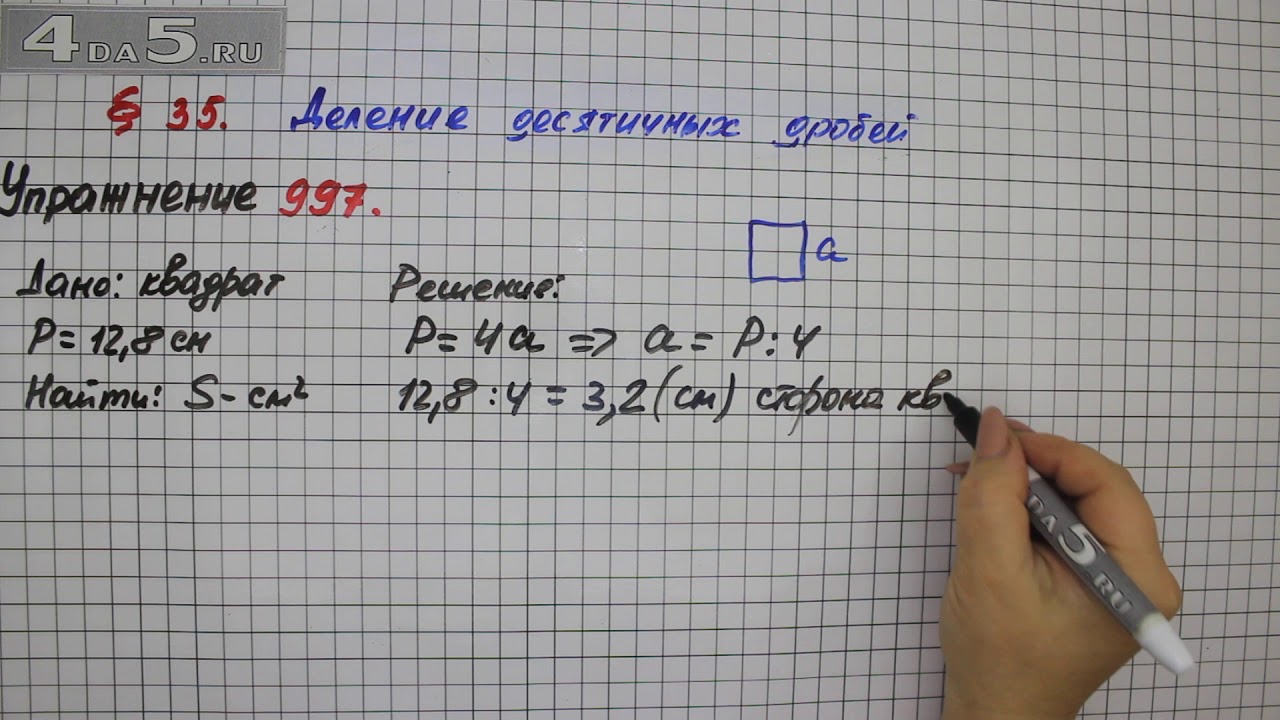 4DA5.RU
§ 35. Деление десятичных дробей
Упражнение 997.
a
Дано: квадрат
P = 12,8 см
Найти: S - см²
Решение:
P = 4a => a = P : 4
12,8 : 4 = 3,2 (см) сторона кв
DA5.RU